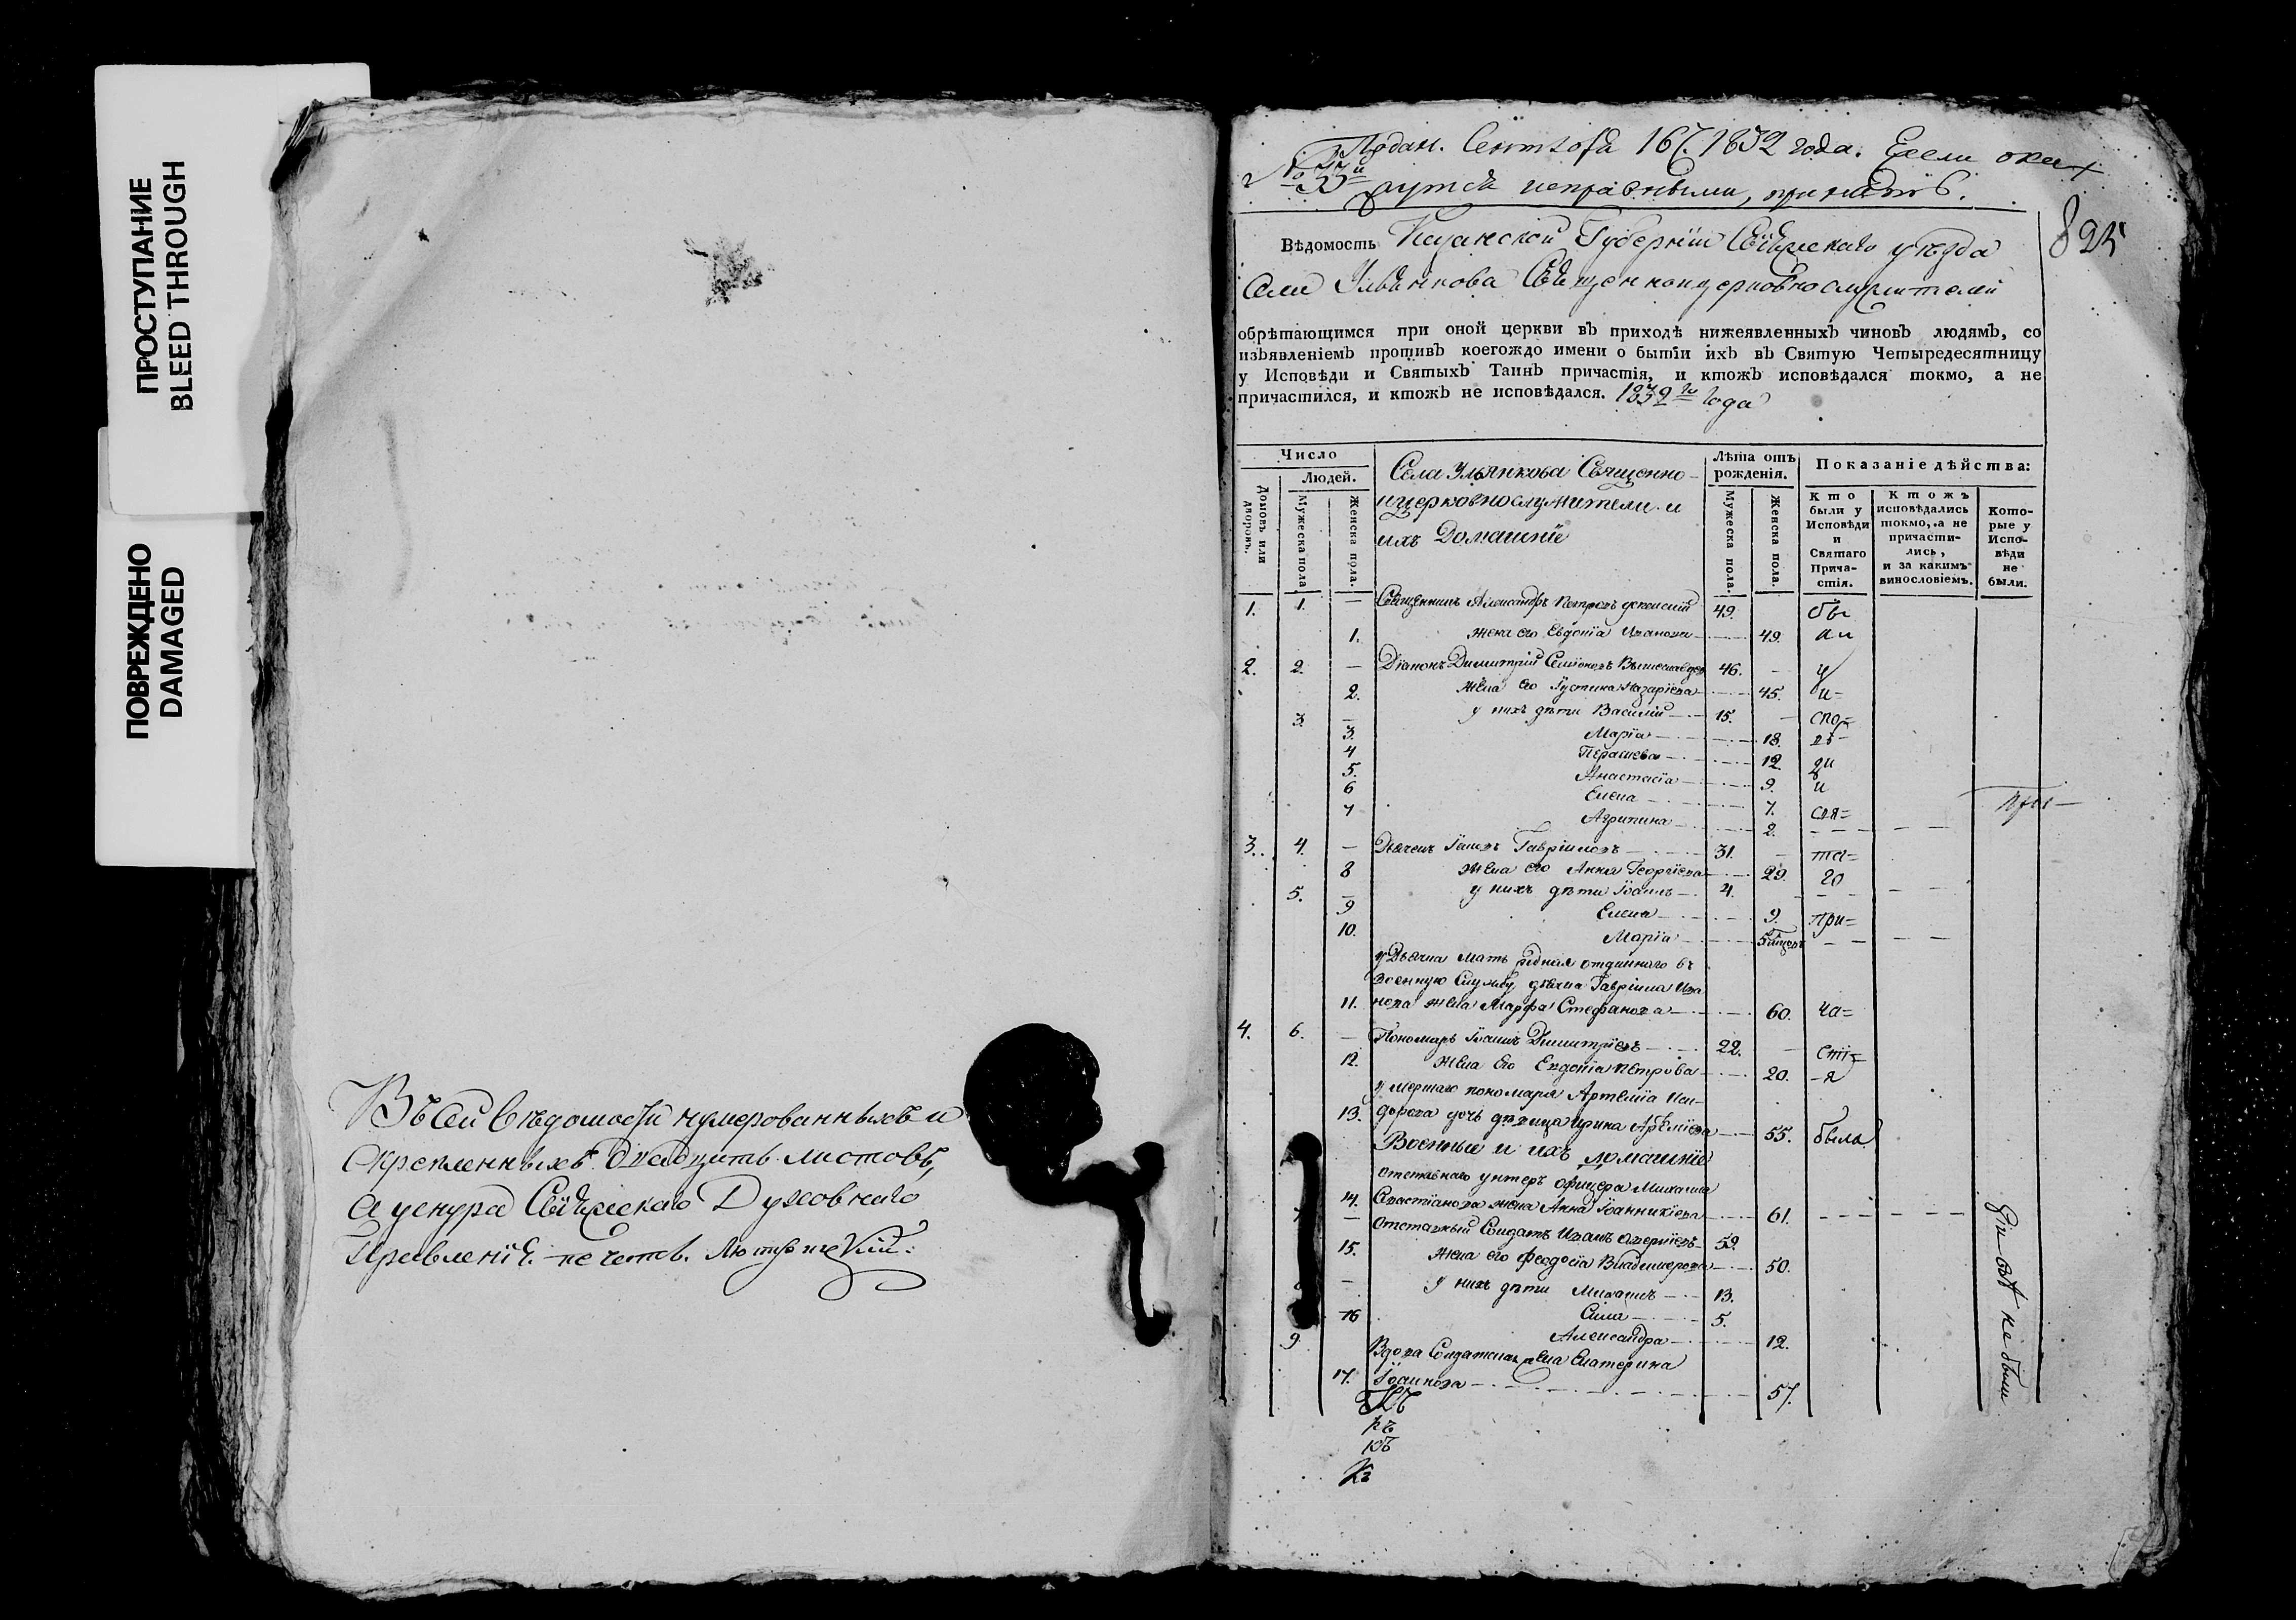 ПРОСТУПАНИЕ
BLEED THROUGH
ПОВРЕЖДЕНО
DAMAGED
Въ сей вѣдомости нумерованныхъ и
скрепленныхъ двадцать листовъ,
а ценура Свіяжскаго Духовнаго
Правленія
Подан. Сентября 16 1832 года. Если ока
№ 33й жутся неправными,
825
Вѣдомость Казанской Губерніи Свіяжскаго уѣзда
Села Ульянкова Священноицерковнослужителей
обрѣтающимся при оной церкви въ приходѣ нижеявленныхъ чиновъ людямъ, со
изъявленіемъ противъ коегождо имени о бытіи ихъ въ Святую Четыредесятницу
у Исповѣди и Святыхъ Таинъ причастія, и ктожъ исповѣдался токмо, а не
причастился, и ктожъ не исповѣдался. 1832го года
Число
Людей.
Домовъ или дворовъ.
Мужеска пола
Женска пола.
Села Ульянкова Священно-
ицерковнослужители и
ихъ Домашніе
Лѣта отъ рожденія.
Мужеска пола.
Женска пола.
Показаніе дѣйства:
Кто были у Исповѣди и Святаго Прича-стія.
Ктожъ исповѣдались токмо, а не причасти-лись, и за какимъ винословіемъ.
Кото-рые у Испо-вѣди не были.
1. 1. — Священникъ Александръ Петровъ 49. бы
1. жена его Евдокіа Иванова 49. ли
2. 2. — Діаконъ Димитрій Семіоновъ 46. — у
2. жена его Іустина Назаріева 45. и-
3 — у нихъ дѣти Василій 15. — спо-
3. Маріа 18. вѣ-
4 Параскева 12. ди
5. Анастасіа 9. и
6 Елена 7. свя-
7 Агрипина 2. — —
3. 4. — Дьячекъ Іаковъ Гавріиловъ 31. — та-
8 жена его Анна Георгіева 29. го
5. — у нихъ дѣти Іоаннъ 4. — —
9 Елена 9. при-
10. Маріа — —
у Дьячка мать родная отданнаго въ
военную службу дьячка Гавріила Ива
11. нова жена Марфа Стефанова 60. ча-
4. 6. — Пономарь Іоаннъ Димитріевъ 22. — сті-
12. жена его Евдокіа Петрова 20. -я
умершаго пономаря Артеміа Иси-
13. дорова дочь дѣвица Ирина Артеміева 55. была
Военные и ихъ домашніе
отставнаго унтеръ офицера Михаила
14. Севастіанова жена Анна Іоанникіева 61. — —
— Отставный Солдатъ Иванъ 59.
15. жена его Феодосіа Владимерова 50.
— у нихъ дѣти Михаилъ 13.
Сила 5.
16 Александра 12.
9 Вдова Солдатская жена Екатерина
17. Іоаннова 57.
не были